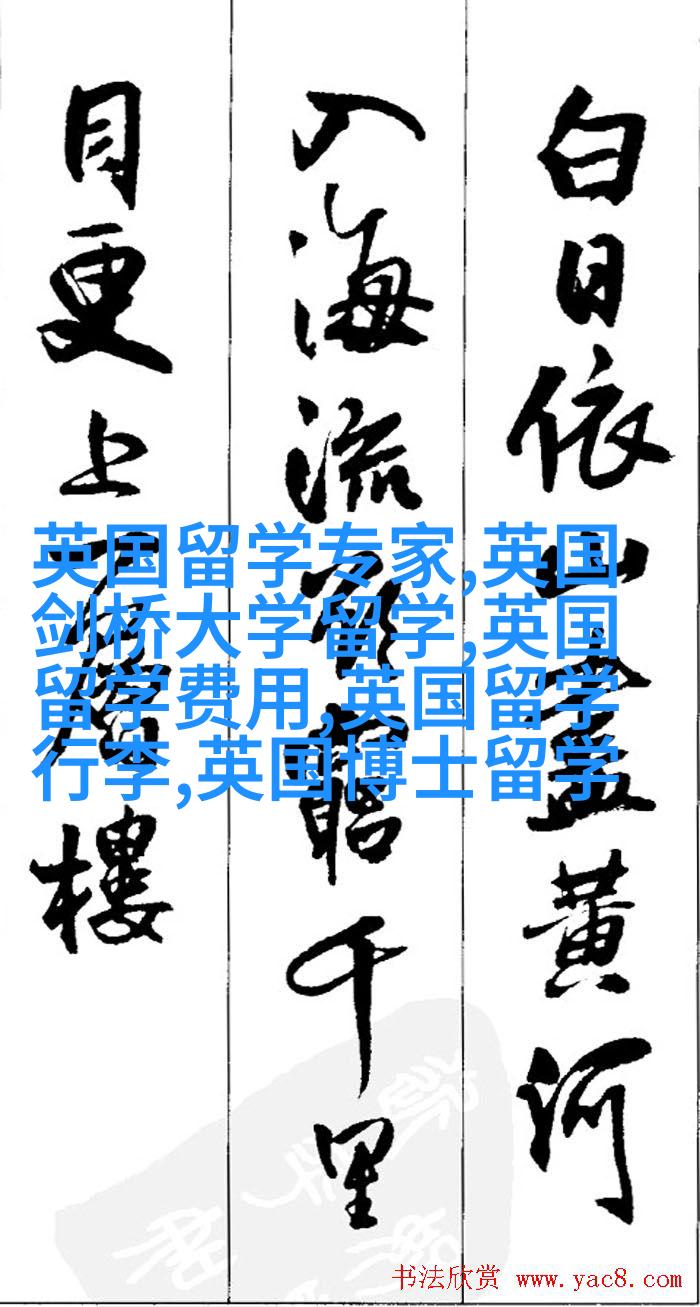 白日依山盡黄河
入海流欲窮千里
目更上一層樓
英国留学专家,英国
剑桥大学留学,英国
留学费用,英国留学
行李,英国博士留学
书法欣赏 www.yac8.com